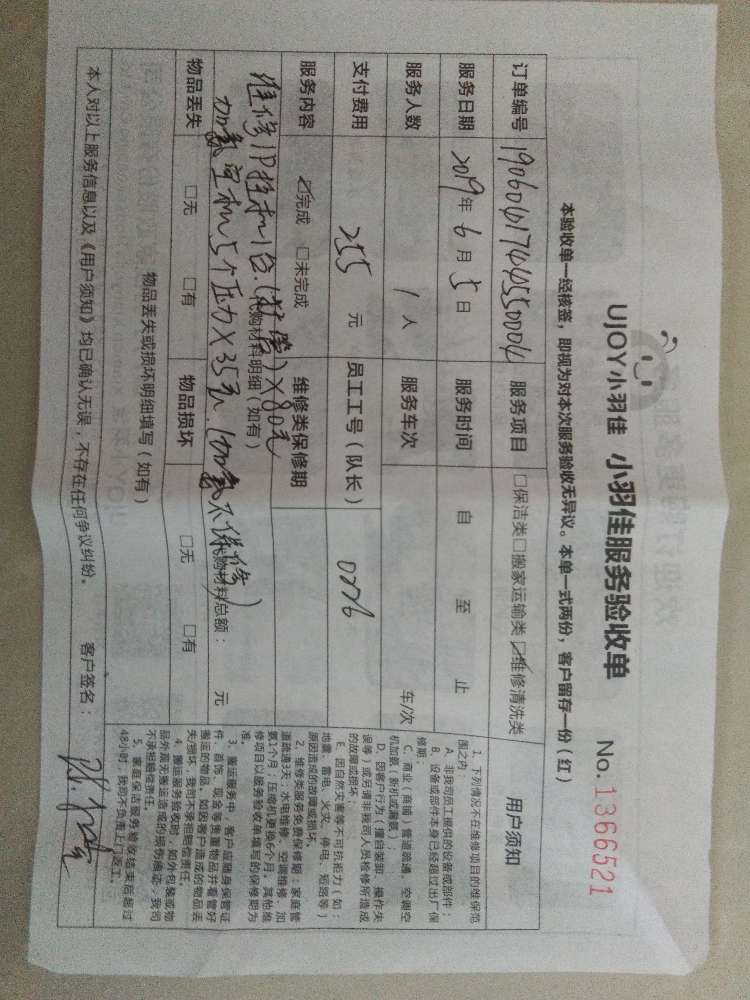 UJOY小羽佳 小羽佳服务验收单 No.1366521
本验收单一经核签，即视为对本次服务验收无异议。本单一式两份，客户留存一份（红）
订单编号 服务项目 □保洁类□搬家运输类☑维修清洗类 用户须知
服务日期 2019年6月5日 服务时间 自 至 止
服务人数 1人 服务车次 车/次
支付费用 255 元 员工工号（队长） 0776
服务内容 ☑完成 □未完成 维修类保修期
代购材料明细（如有）
维修1P挂机1台.( )×80元
加氟 5个压力×35元.(加氟不保修)
代购材料总额： 元
物品丢失 □无 □有 物品损坏 □无 □有
物品丢失或损坏明细填写（如有）
本人对以上服务信息以及《用户须知》均已确认无误，不存在任何争议纠纷。 客户签名：
1、下列情况不在维修项目的维保范
围之内：
A、非我司员工提供的设备或部件；
B、设备或部件本身已经超过出厂保
修期；
C、商业（商铺）管道疏通、空调空
机加氨（新机或漏氨）；
D、因客户行为（擅自装卸、操作失
误等）或另请非我司人员检修所造成
的故障或损坏；
E、因自然灾害等不可抗拒力（如：
地震、雷电、火灾、停电、短路等）
原因造成的故障或损坏。
2、维修类服务免费保修期：家庭管
道疏通3天；水电维修、空调维修、加
氨1个月；压缩机更换6个月；其他维
修项目以服务验收单填写的保修期为
准。
3、搬运服务中，客户应随身保管证
件、首饰、现金等贵重物品并看管好
搬运的物品。如因客户造成的物品丢
失/损坏，我司不承担赔偿责任。
4、搬运服务验收时，如外包装或物
品外观无搬运造成的损伤痕迹，我司
不承担赔偿责任。
5、家庭保洁服务验收结束后超过
48小时，我司不负责上门返工。